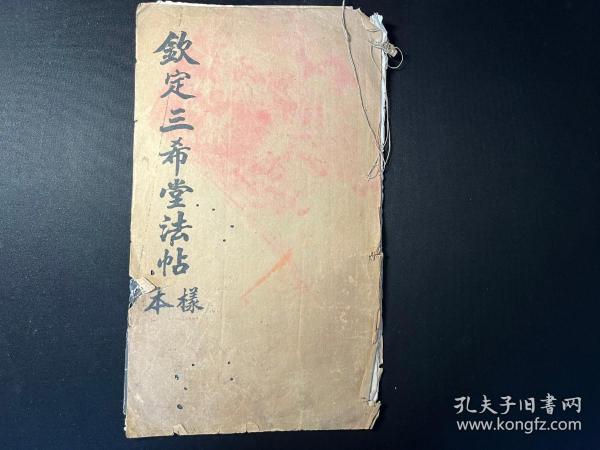 欽定三希堂法帖
樣本
孔夫子旧書网
www.kongfz.com